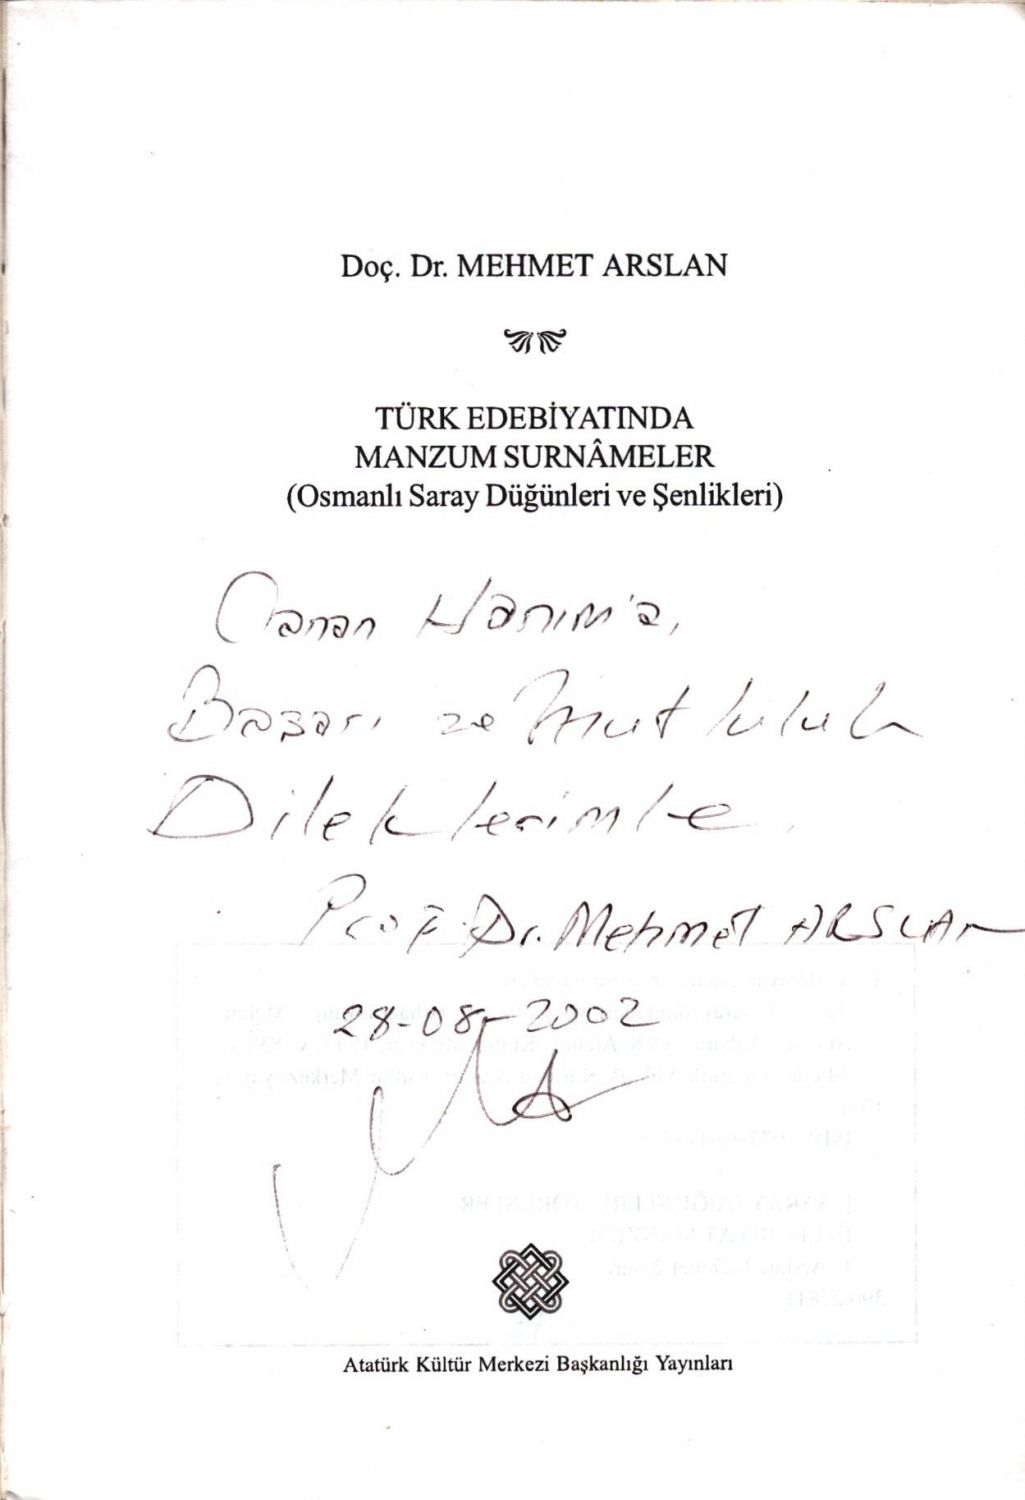 Doç. Dr. MEHMET ARSLAN
TÜRK EDEBİYATINDA
MANZUM SURNÂMELER
(Osmanlı Saray Düğünleri ve Şenlikleri)
Canan Hanım'a,
Başarı ve Mutluluk
Dileklerimle.
Prof. Dr. Mehmet ARSLAN
28-08-2002
Atatürk Kültür Merkezi Başkanlığı Yayınları